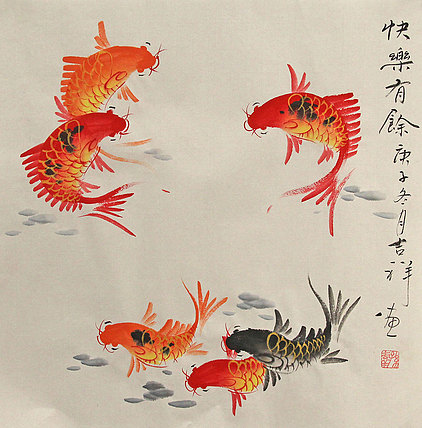 快樂有餘庚子冬月吉祥畫